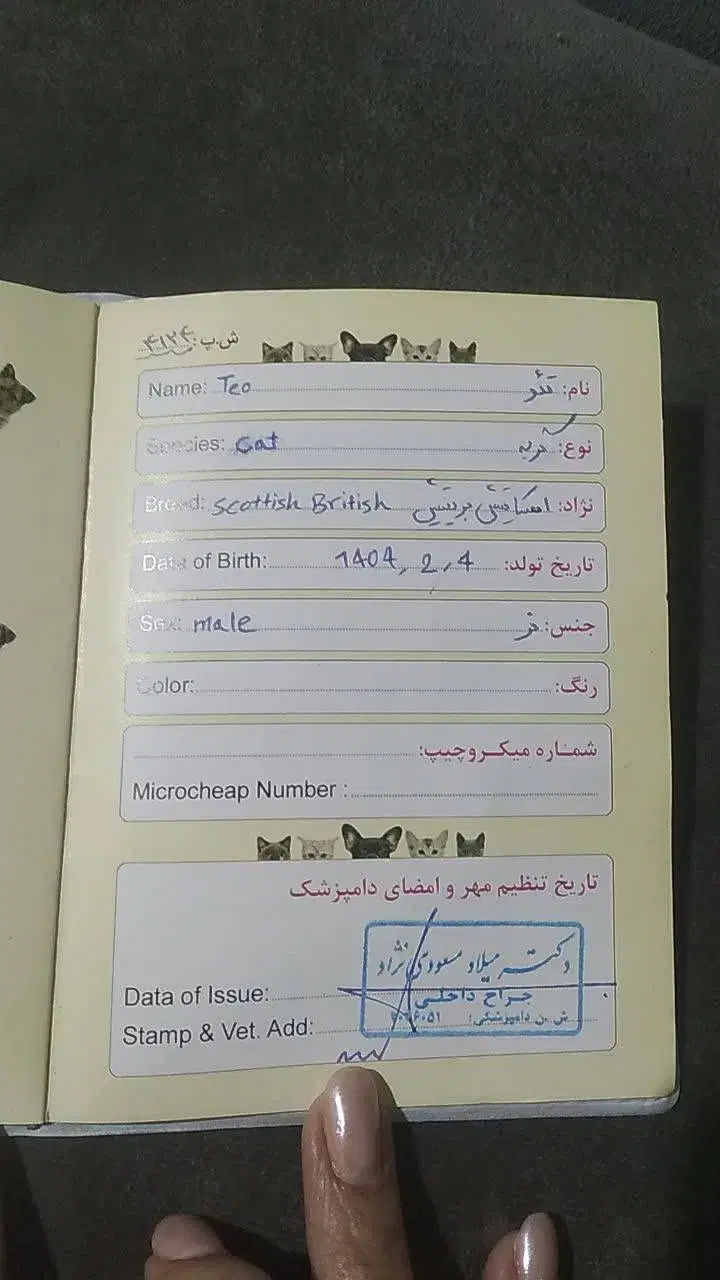 ش.پ: ۴۱۲۴
Name: Teo نام: تئو
Species: Cat نوع: گربه
Breed: Scottish British نژاد: اسکاتیش بریتیش
Date of Birth: 1404, 2, 4 تاریخ تولد:
Sex: male جنس: نر
Color: رنگ:
شماره میکروچیپ:
Microcheap Number :
تاریخ تنظیم مهر و امضای دامپزشک
دکتر میلاد مسعودی نژاد
Data of Issue:
جراح داخلی
Stamp & Vet. Add:
ش.ن دامپزشکی: